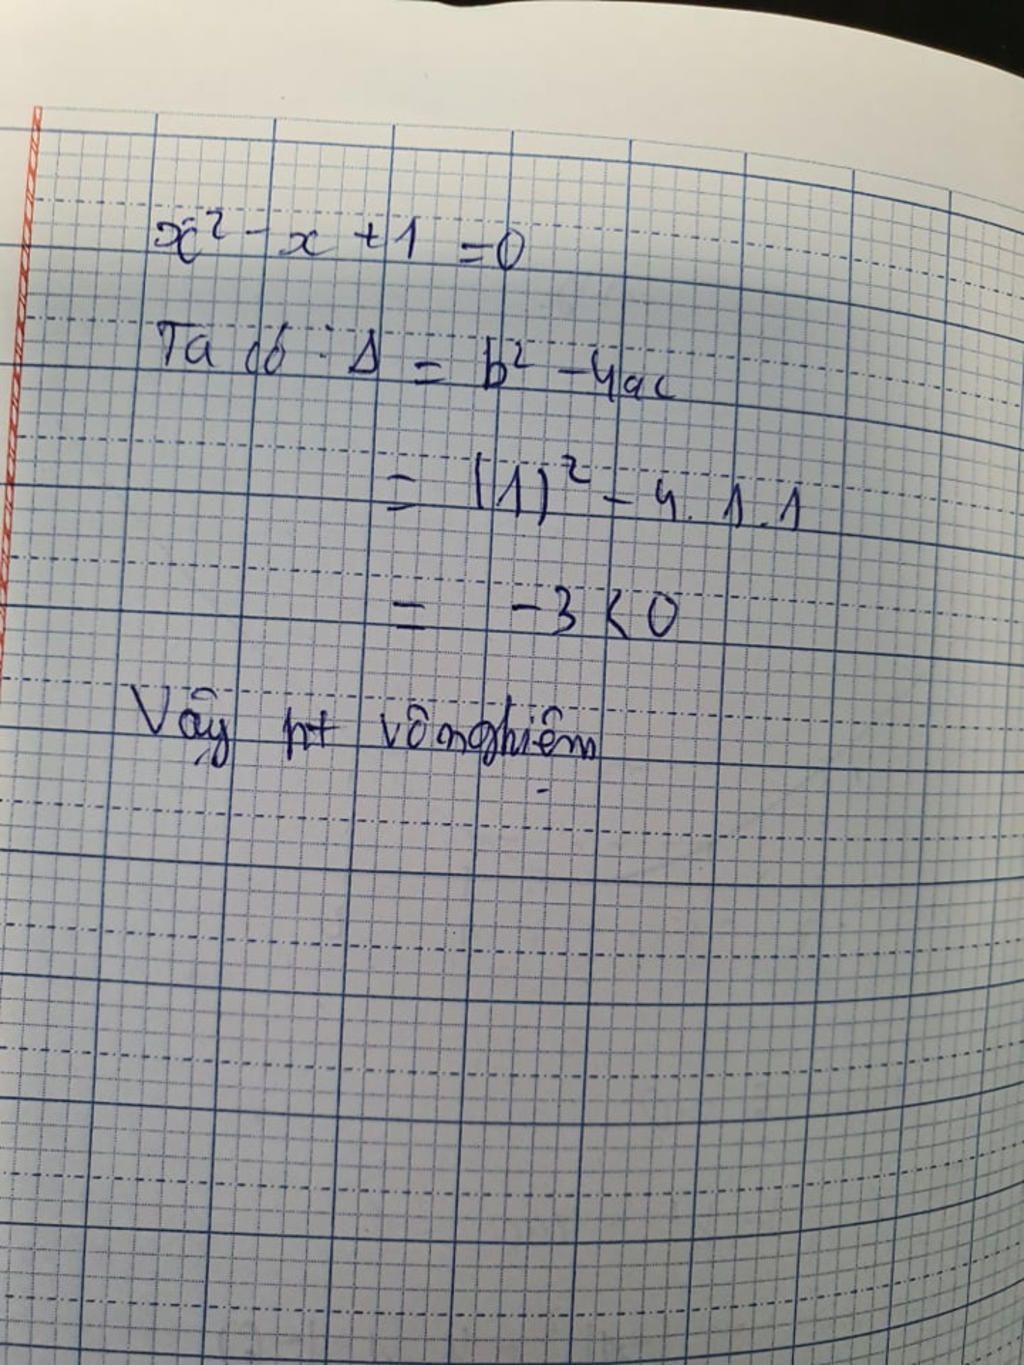 x² - x + 1 = 0
Ta có : Δ = b² - 4ac
= (1)² - 4.1.1
= -3 < 0
Vậy pt vô nghiệm